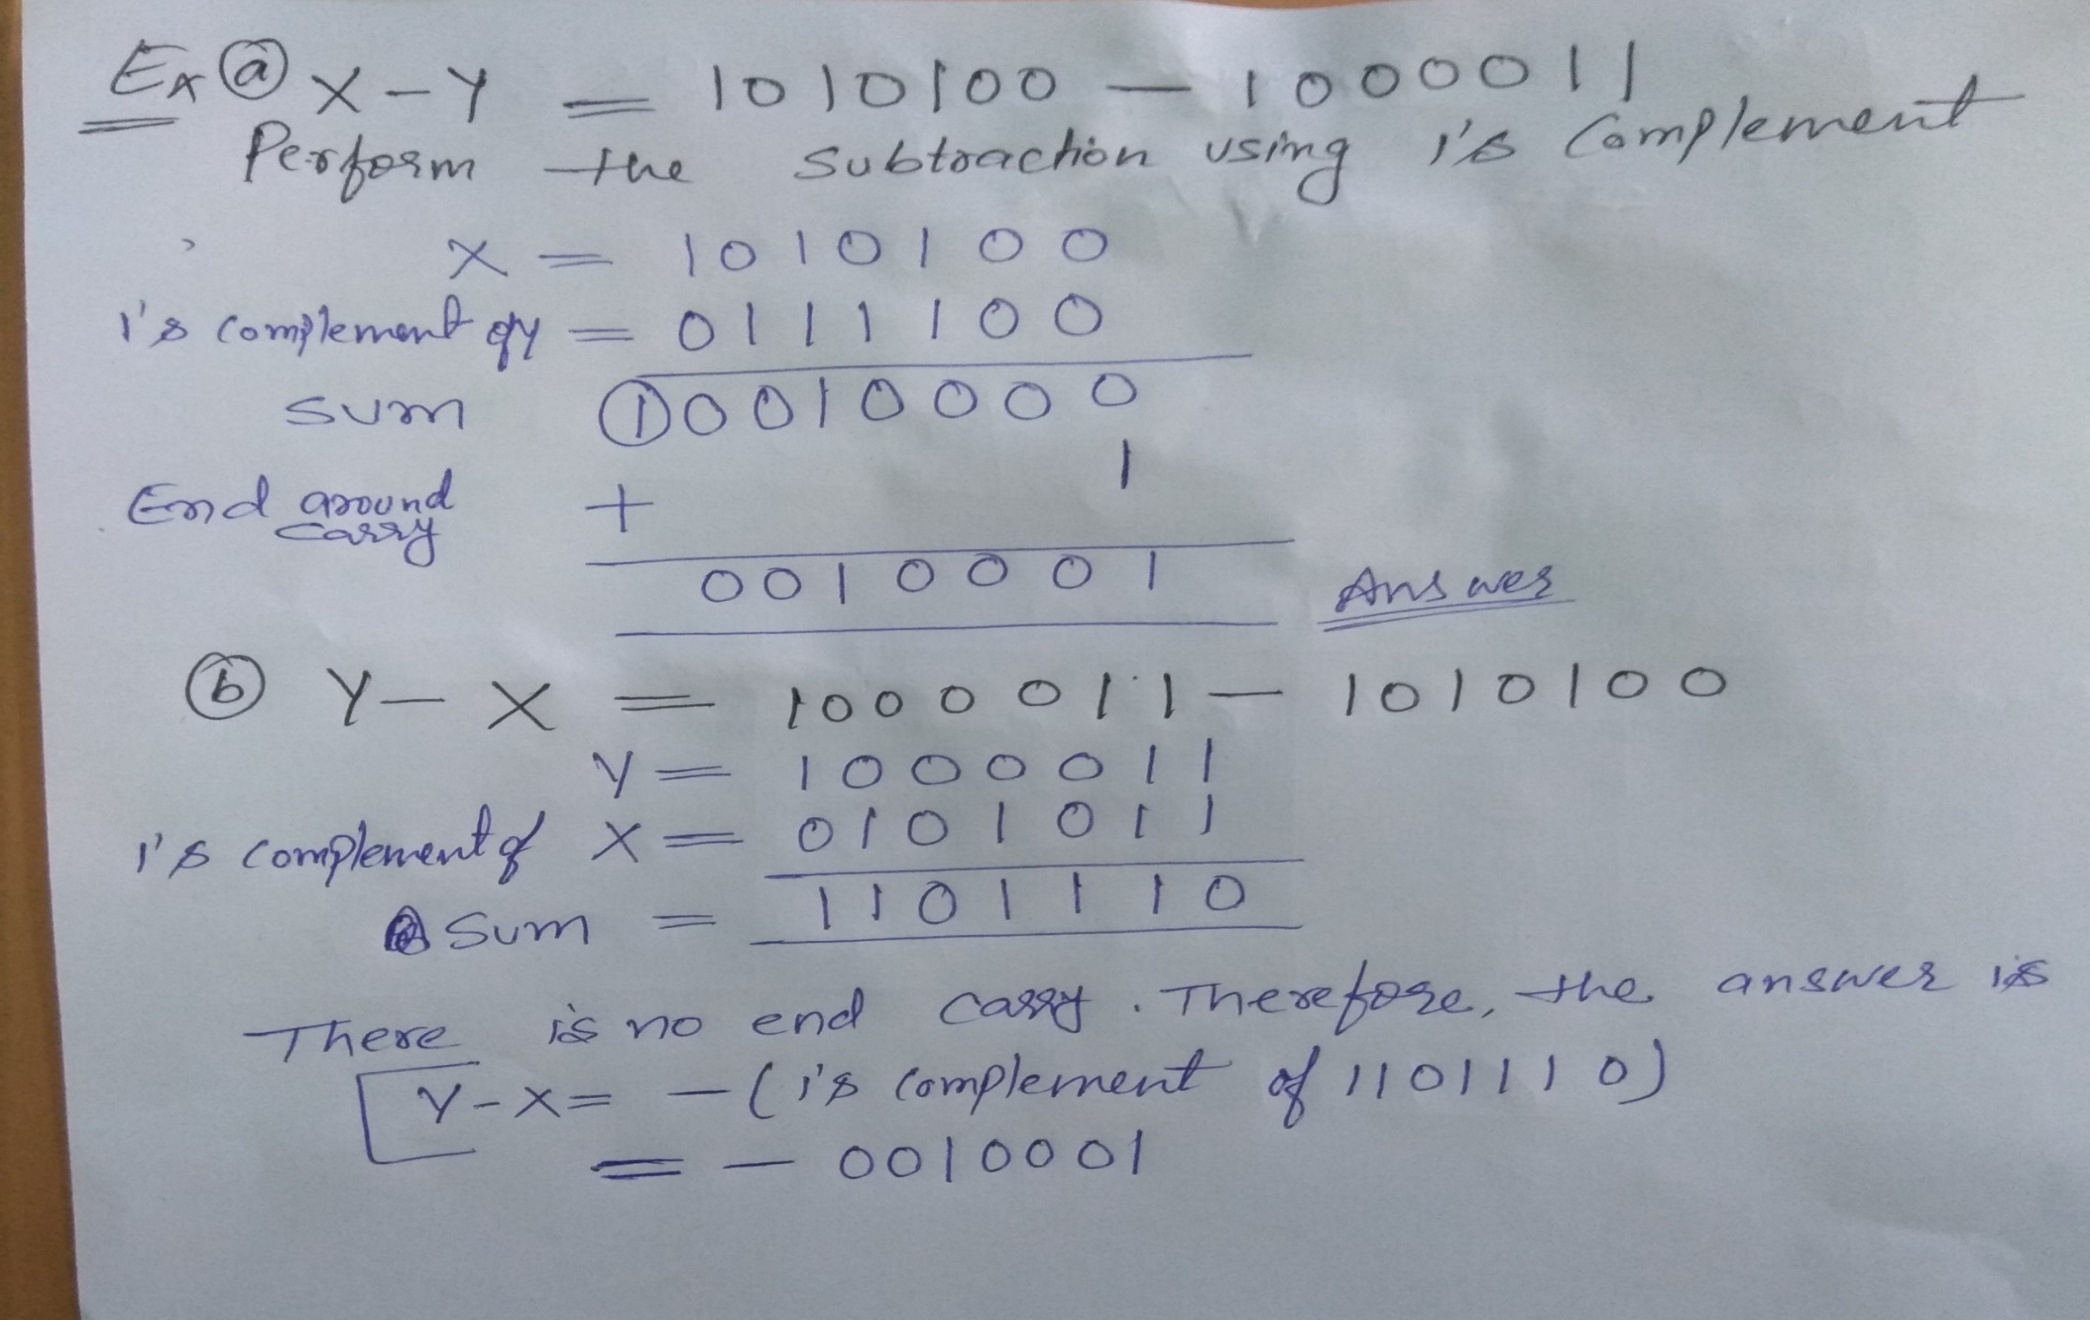 Ex ⓐ X - Y = 1010100 - 1000011
Perform the subtraction using 1's Complement
X = 1010100
1's complement of Y = 0111100
sum ①0010000
End around carry + 1
0010001 Answer
ⓑ Y - X = 1000011 - 1010100
Y = 1000011
1's complement of X = 0101011
Sum = 1101110
There is no end carry. Therefore, the answer is
Y-X = -(1's complement of 1101110)
= - 0010001